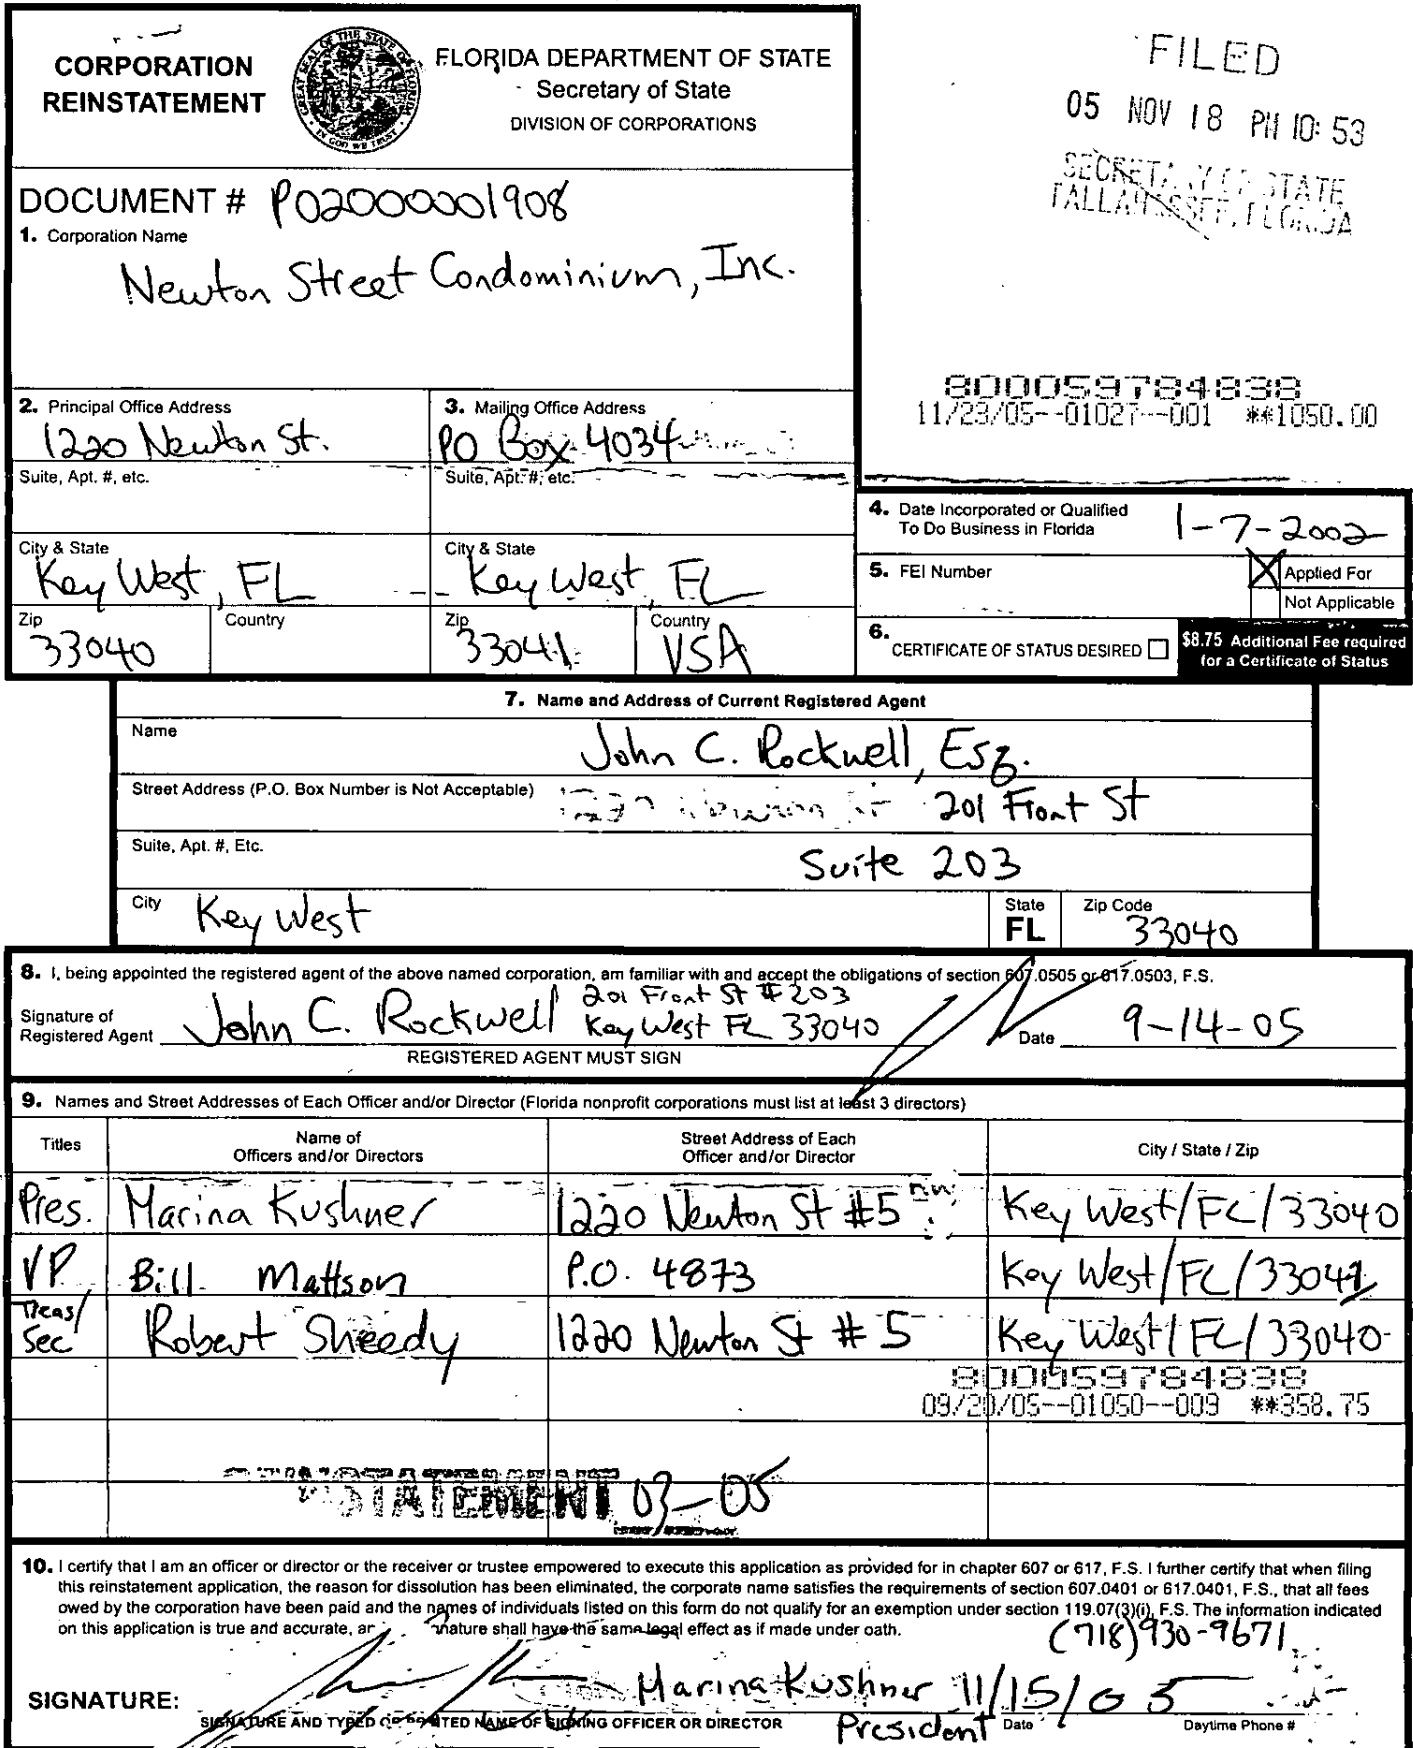 CORPORATION
REINSTATEMENT
FLORIDA DEPARTMENT OF STATE
Secretary of State
DIVISION OF CORPORATIONS
FILED
05 NOV 18 PM 10:53
SECRETARY OF STATE
TALLAHASSEE, FLORIDA
DOCUMENT # P02000001908
1. Corporation Name
Newton Street Condominium, Inc.
800059784838
11/23/05--01027--001 **1050.00
2. Principal Office Address
1220 Newton St.
3. Mailing Office Address
PO Box 4034
Suite, Apt. #, etc.
Suite, Apt. #, etc.
City & State
Key West, FL
City & State
Key West, FL
Zip
33040
Country
Zip
33041
Country
USA
4. Date Incorporated or Qualified
To Do Business in Florida
1-7-2002
5. FEI Number
X Applied For
Not Applicable
6. CERTIFICATE OF STATUS DESIRED
$8.75 Additional Fee required
for a Certificate of Status
7. Name and Address of Current Registered Agent
Name
John C. Rockwell, Esq.
Street Address (P.O. Box Number is Not Acceptable)
201 Front St
Suite, Apt. #, Etc.
Suite 203
City
Key West
State
FL
Zip Code
33040
8. I, being appointed the registered agent of the above named corporation, am familiar with and accept the obligations of section 607.0505 or 617.0503, F.S.
Signature of
Registered Agent
John C. Rockwell
201 Front St #203
Key West FL 33040
Date
9-14-05
REGISTERED AGENT MUST SIGN
9. Names and Street Addresses of Each Officer and/or Director (Florida nonprofit corporations must list at least 3 directors)
Titles
Name of
Officers and/or Directors
Street Address of Each
Officer and/or Director
City / State / Zip
Pres. Marina Kushner 1220 Newton St #5 Key West/FL/33040
VP Bill Mattson P.O. 4873 Key West/FL/33041
Treas/
Sec Robert Sheedy 1220 Newton St #5 Key West/FL/33040
800059784838
09/20/05--01050--009 **358.75
REINSTATEMENT 03-05
10. I certify that I am an officer or director or the receiver or trustee empowered to execute this application as provided for in chapter 607 or 617, F.S. I further certify that when filing
this reinstatement application, the reason for dissolution has been eliminated, the corporate name satisfies the requirements of section 607.0401 or 617.0401, F.S., that all fees
owed by the corporation have been paid and the names of individuals listed on this form do not qualify for an exemption under section 119.07(3)(i), F.S. The information indicated
on this application is true and accurate, an nature shall have the same legal effect as if made under oath.
(718)930-9671
SIGNATURE:
Marina Kushner 11/15/05
President
SIGNATURE AND TYPED OR PRINTED NAME OF SIGNING OFFICER OR DIRECTOR
Date
Daytime Phone #